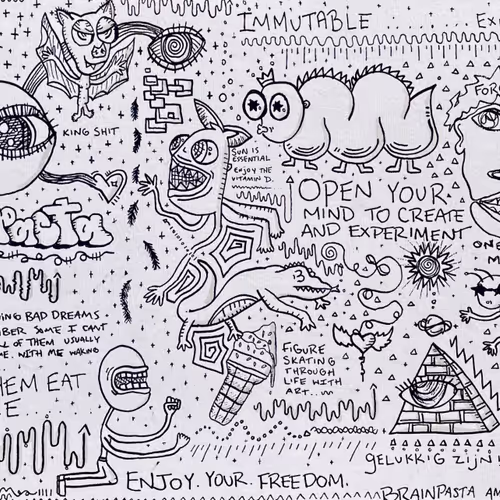 IMMUTABLE
EX
FOR
KING SHIT
SUN IS
ESSENTIAL
ENJOY THE
VITAMIN D.
OPEN YOUR
MIND TO CREATE
AND EXPERIMENT
Pasta
ONE
M
ING BAD DREAMS
BER SOME I CANT
LL OF THEM USUALLY
E. WITH ME WAKING
HEM EAT
E...
FIGURE
SKATING
THROUGH
LIFE WITH
ART...
GELUKKIG ZIJN
ENJOY. YOUR. FREEDOM.
BRAINPASTA A